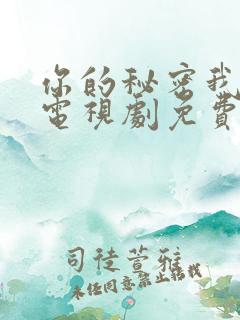 你的秘密我
電視劇免費
司徒萱雅
未经同意禁止转载